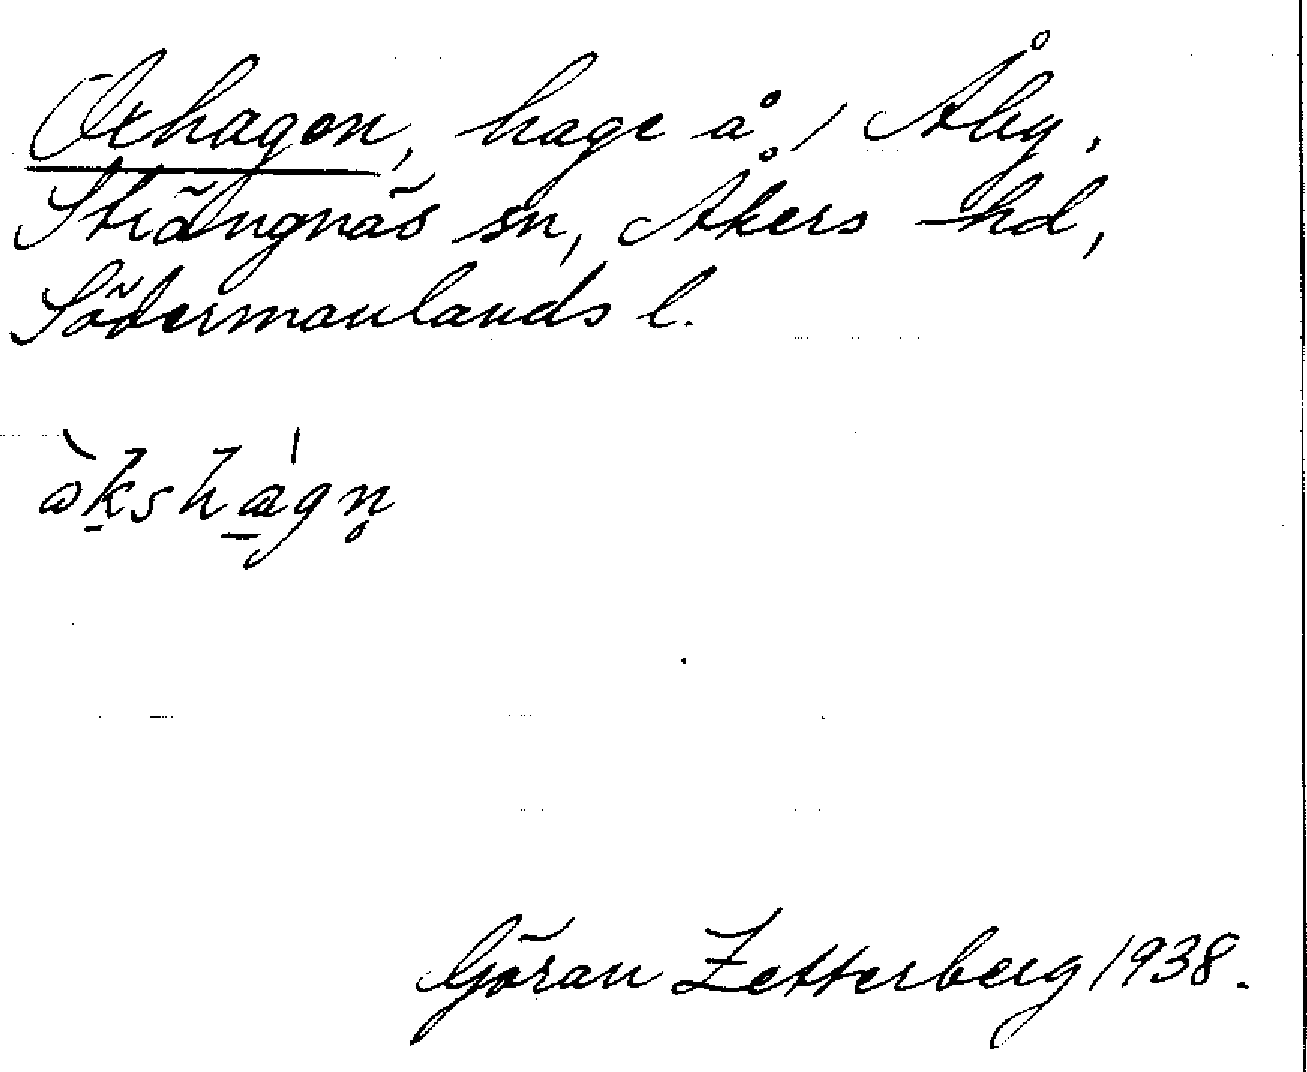 Oxhagen, hage å / Åby,
Strängnäs sn, Åkers hd,
Södermanlands l.
òkshágn̥
Göran Zetterberg 1938.